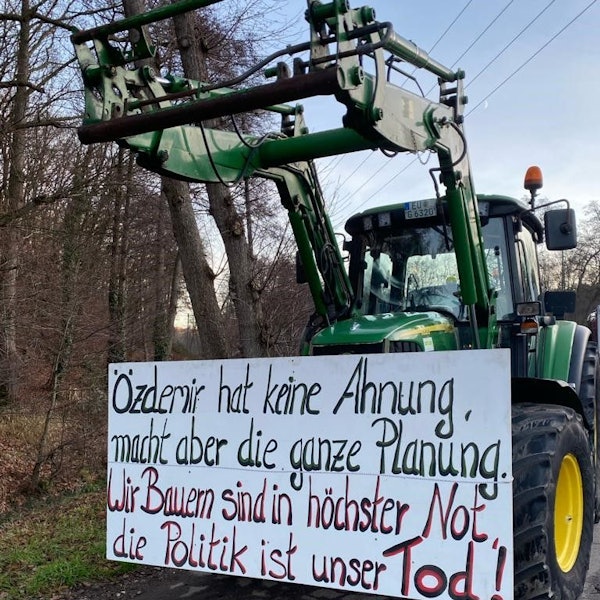 EU
G 6320
Özdemir hat keine Ahnung,
macht aber die ganze Planung.
Wir Bauern sind in höchster Not,
die Politik ist unser Tod!